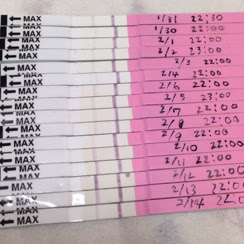 MAX 1/31 22:30
MAX 1/30 22:00
MAX 2/1 22:00
MAX 2/2 23:00
MAX 2/3 22:00
MAX 2/4 22:00
MAX 2/6 22:00
MAX 2/5 23:00
MAX 2/7 22:00
MAX 2/8 22:00
MAX 2/9 22:00
MAX 2/10 22:00
MAX 2/11 22:00
MAX 2/12 22:00
MAX 2/13 22:00
MAX 2/14 22:00